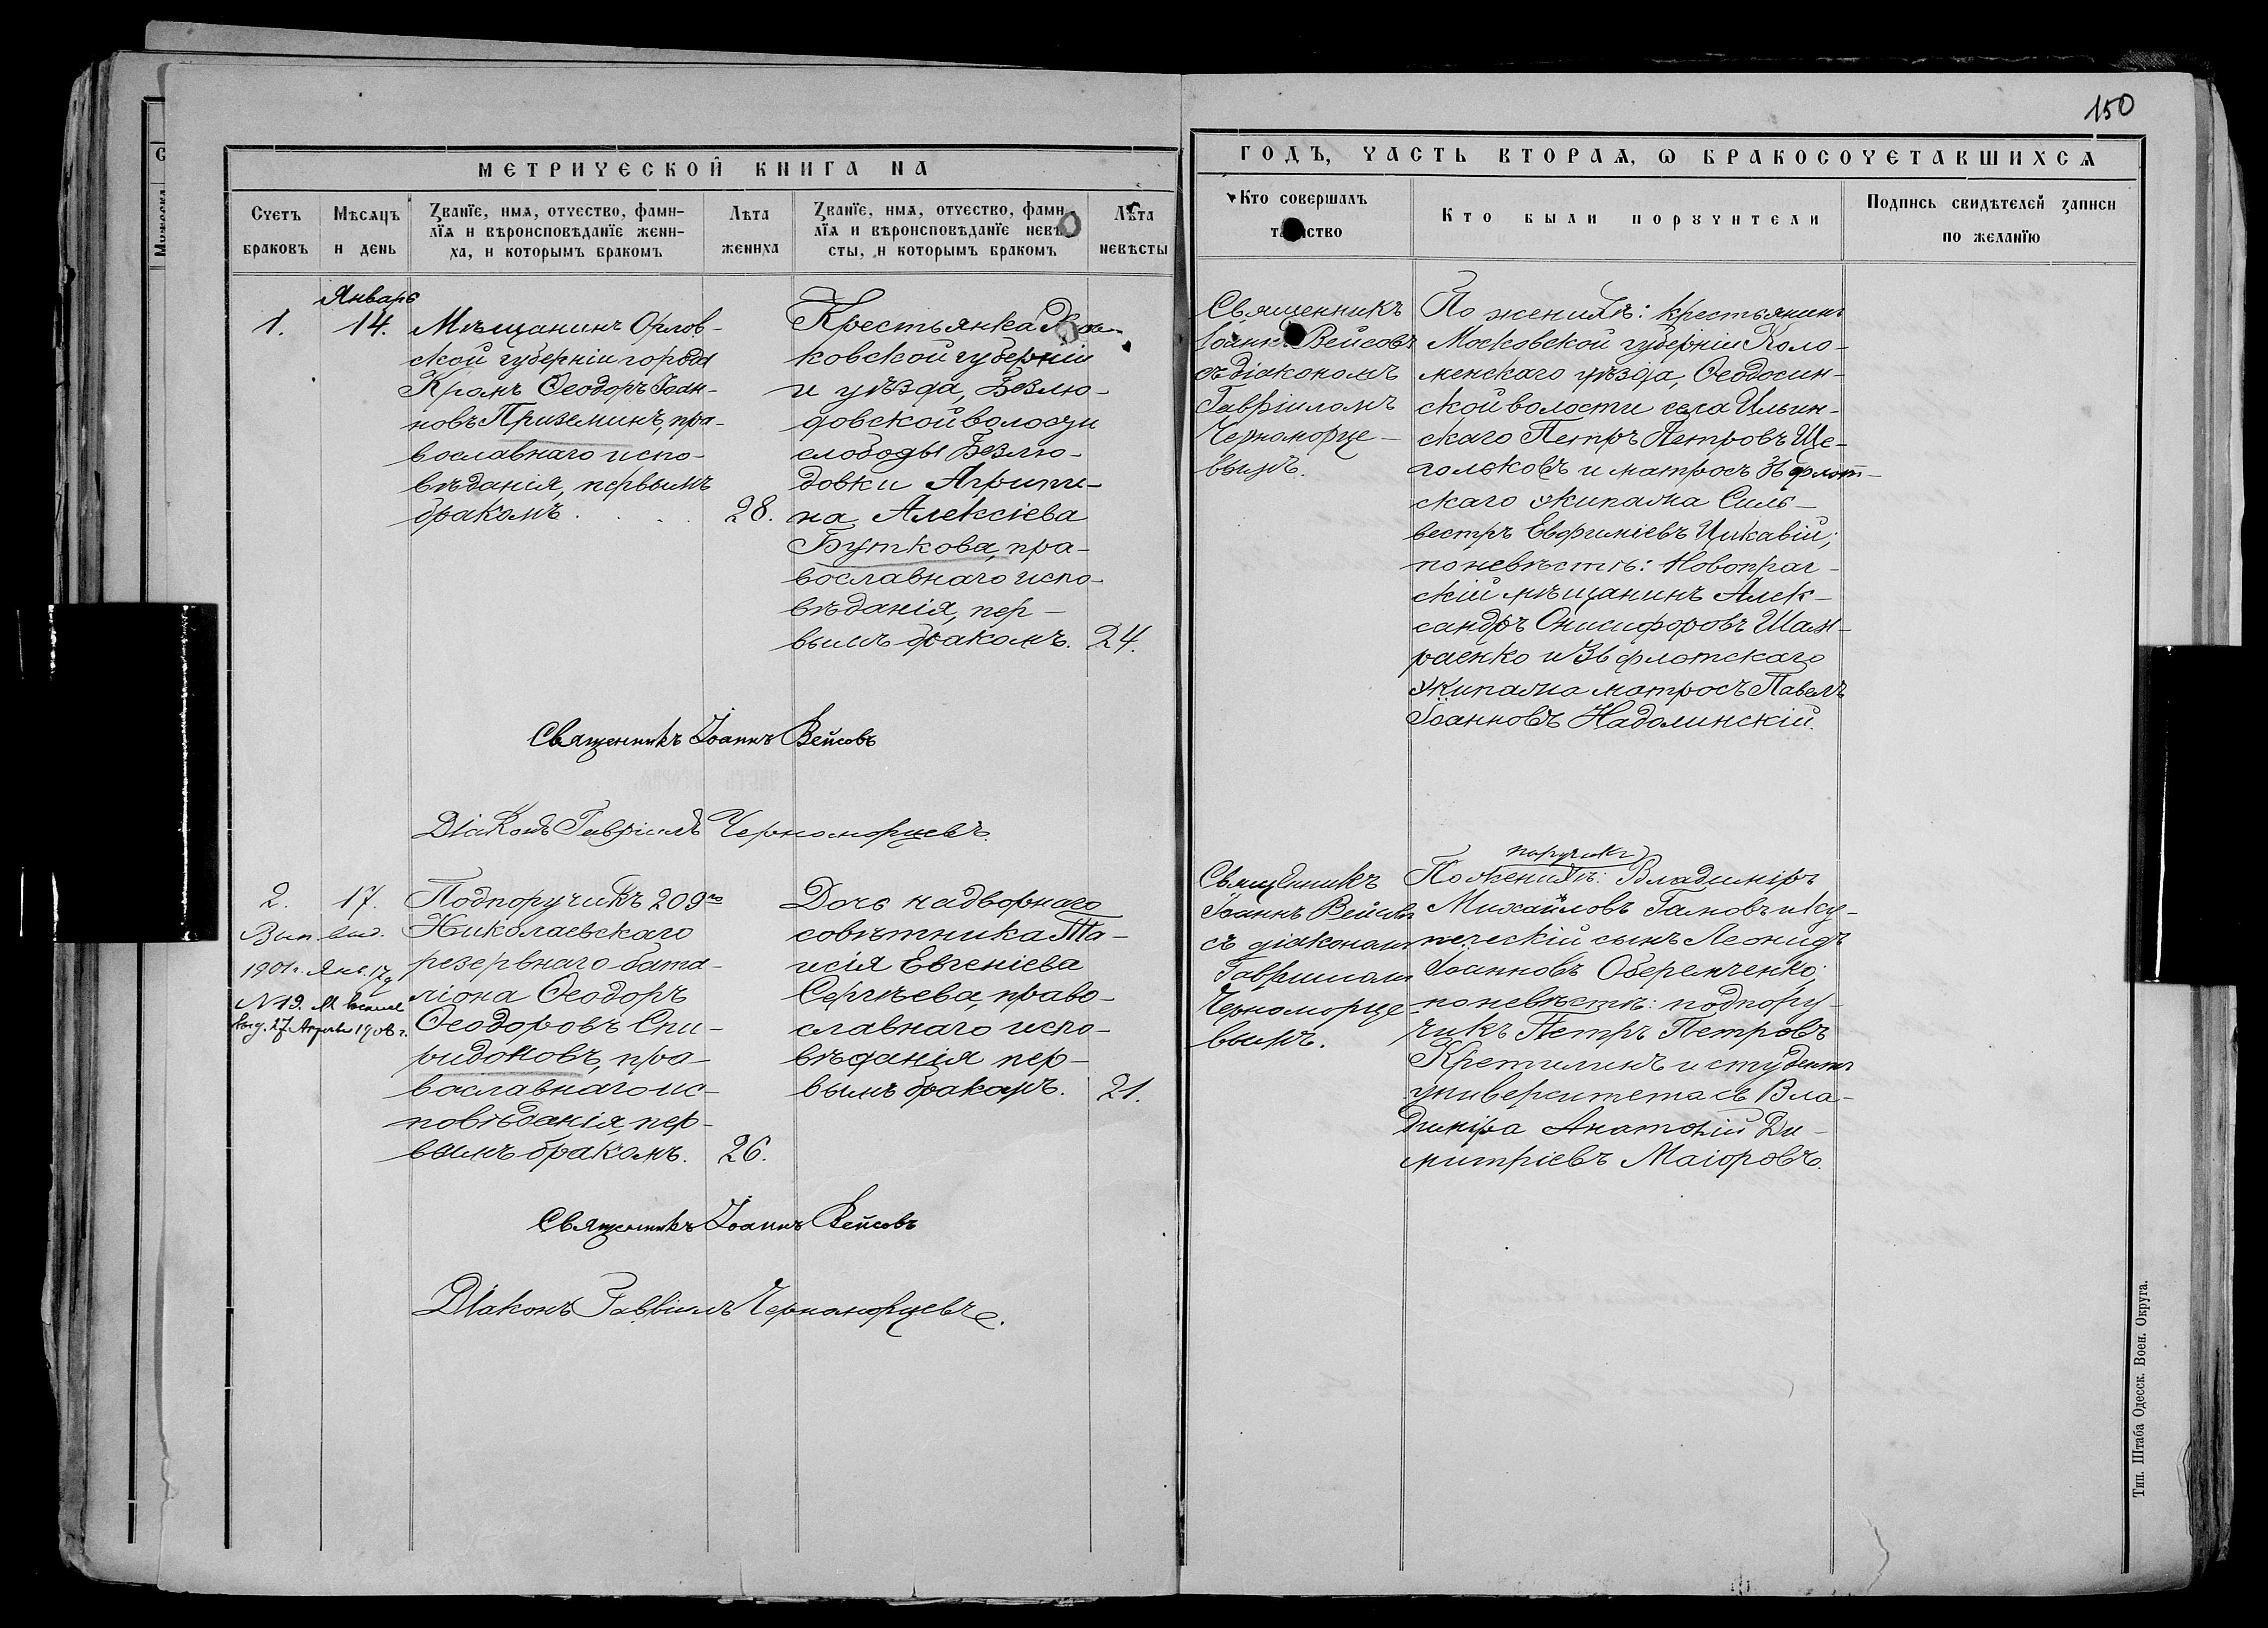 150
МЕТРИЧЕСКОЙ КНИГА НА
ГОДЪ, ЧАСТЬ ВТОРАѦ, Ѡ БРАКОСОЧЕТАВШИХСѦ
Счетъ браковъ
Мѣсѧцъ и день
Званїе, имѧ, отчество, фами-
лїѧ и вѣроисповѣданїе жени-
ха, и которымъ бракомъ
Лѣта жениха
Званїе, имѧ, отчество, фами
лїѧ и вѣроисповѣданїе невѣ
сты, и которымъ бракомъ
Лѣта невѣсты
Кто совершалъ
таинство
Кто были порꙋчители
Подпись свидѣтелей записи
по желанїю
1.
Январь
14.
Мѣщанинъ Орлов-
ской губерніи города
Кромъ Ѳеодоръ Іоан-
новъПриземинъ, пра-
вославнаго испо-
вѣданія, первымъ
бракомъ
28.
Крестьянка
ковской губерніи
и уѣзда, Безлю-
довской волости
слободы Безлю-
довки Агрипи-
на Алексіева
Буткова, пра-
вославнаго испо-
вѣданія, пер-
вымъ бракомъ.
24.
Священникъ
Іоаннъ Вейсовъ
съ діакономъ
Гавріиломъ
Черноморце-
вымъ.
По женихѣ: крестьянинъ
Московской губерніи Коло-
менскаго уѣзда, Ѳеодосин-
ской волости села Ильин-
скаго Петръ Петровъ Ще-
гольковъ и матросъ 36 флот-
скаго экипажа Силь-
вестръ Евфиміевъ Цикавій;
по невѣстѣ: Новопраг-
скій мѣщанинъ Алек-
сандръ Онисифоровъ Шам-
раенко и 36 флотскаго
экипажа матросъ Павелъ
Іоанновъ Надолинскій.
Священникъ Іоаннъ Вейсовъ
Діаконъ Гавріилъ Черноморцевъ.
2.
17.
Вып. вид.
1901 г. Янв. 17
N 19.
выд. 27 Апрѣля 1906 г.
Подпоручикъ 209го
Николаевскаго
резервнаго бата-
ліона Ѳеодоръ
Ѳеодоровъ Спи-
ридоновъ, пра-
вославнаго ис-
повѣданія, пер-
вымъ бракомъ.
26.
Дочь надворнаго
совѣтника Та-
исія Евгеніева
Сергѣева, право-
славнаго испо-
вѣданія пер-
вымъ бракомъ.
21.
Священникъ
Іоаннъ Вейсовъ
съ діакономъ
Гавріиломъ
Черноморце-
вымъ.
поручикъ
По женихѣ: Владиміръ
Михайловъ Гамовъ и ку-
печескій сынъ Леонидъ
Іоанновъ Оберемченко;
по невѣстѣ: подпору-
чикъ Петръ Петровъ
Кретилинъ и студентъ
университета св Вла-
диміра Анатолій Ди-
митріевъ Маіоровъ.
Священникъ Іоаннъ Вейсовъ
Діаконъ Гавріилъ Черноморцевъ.
Тип. Штаба Одесск. Воен. Округа.